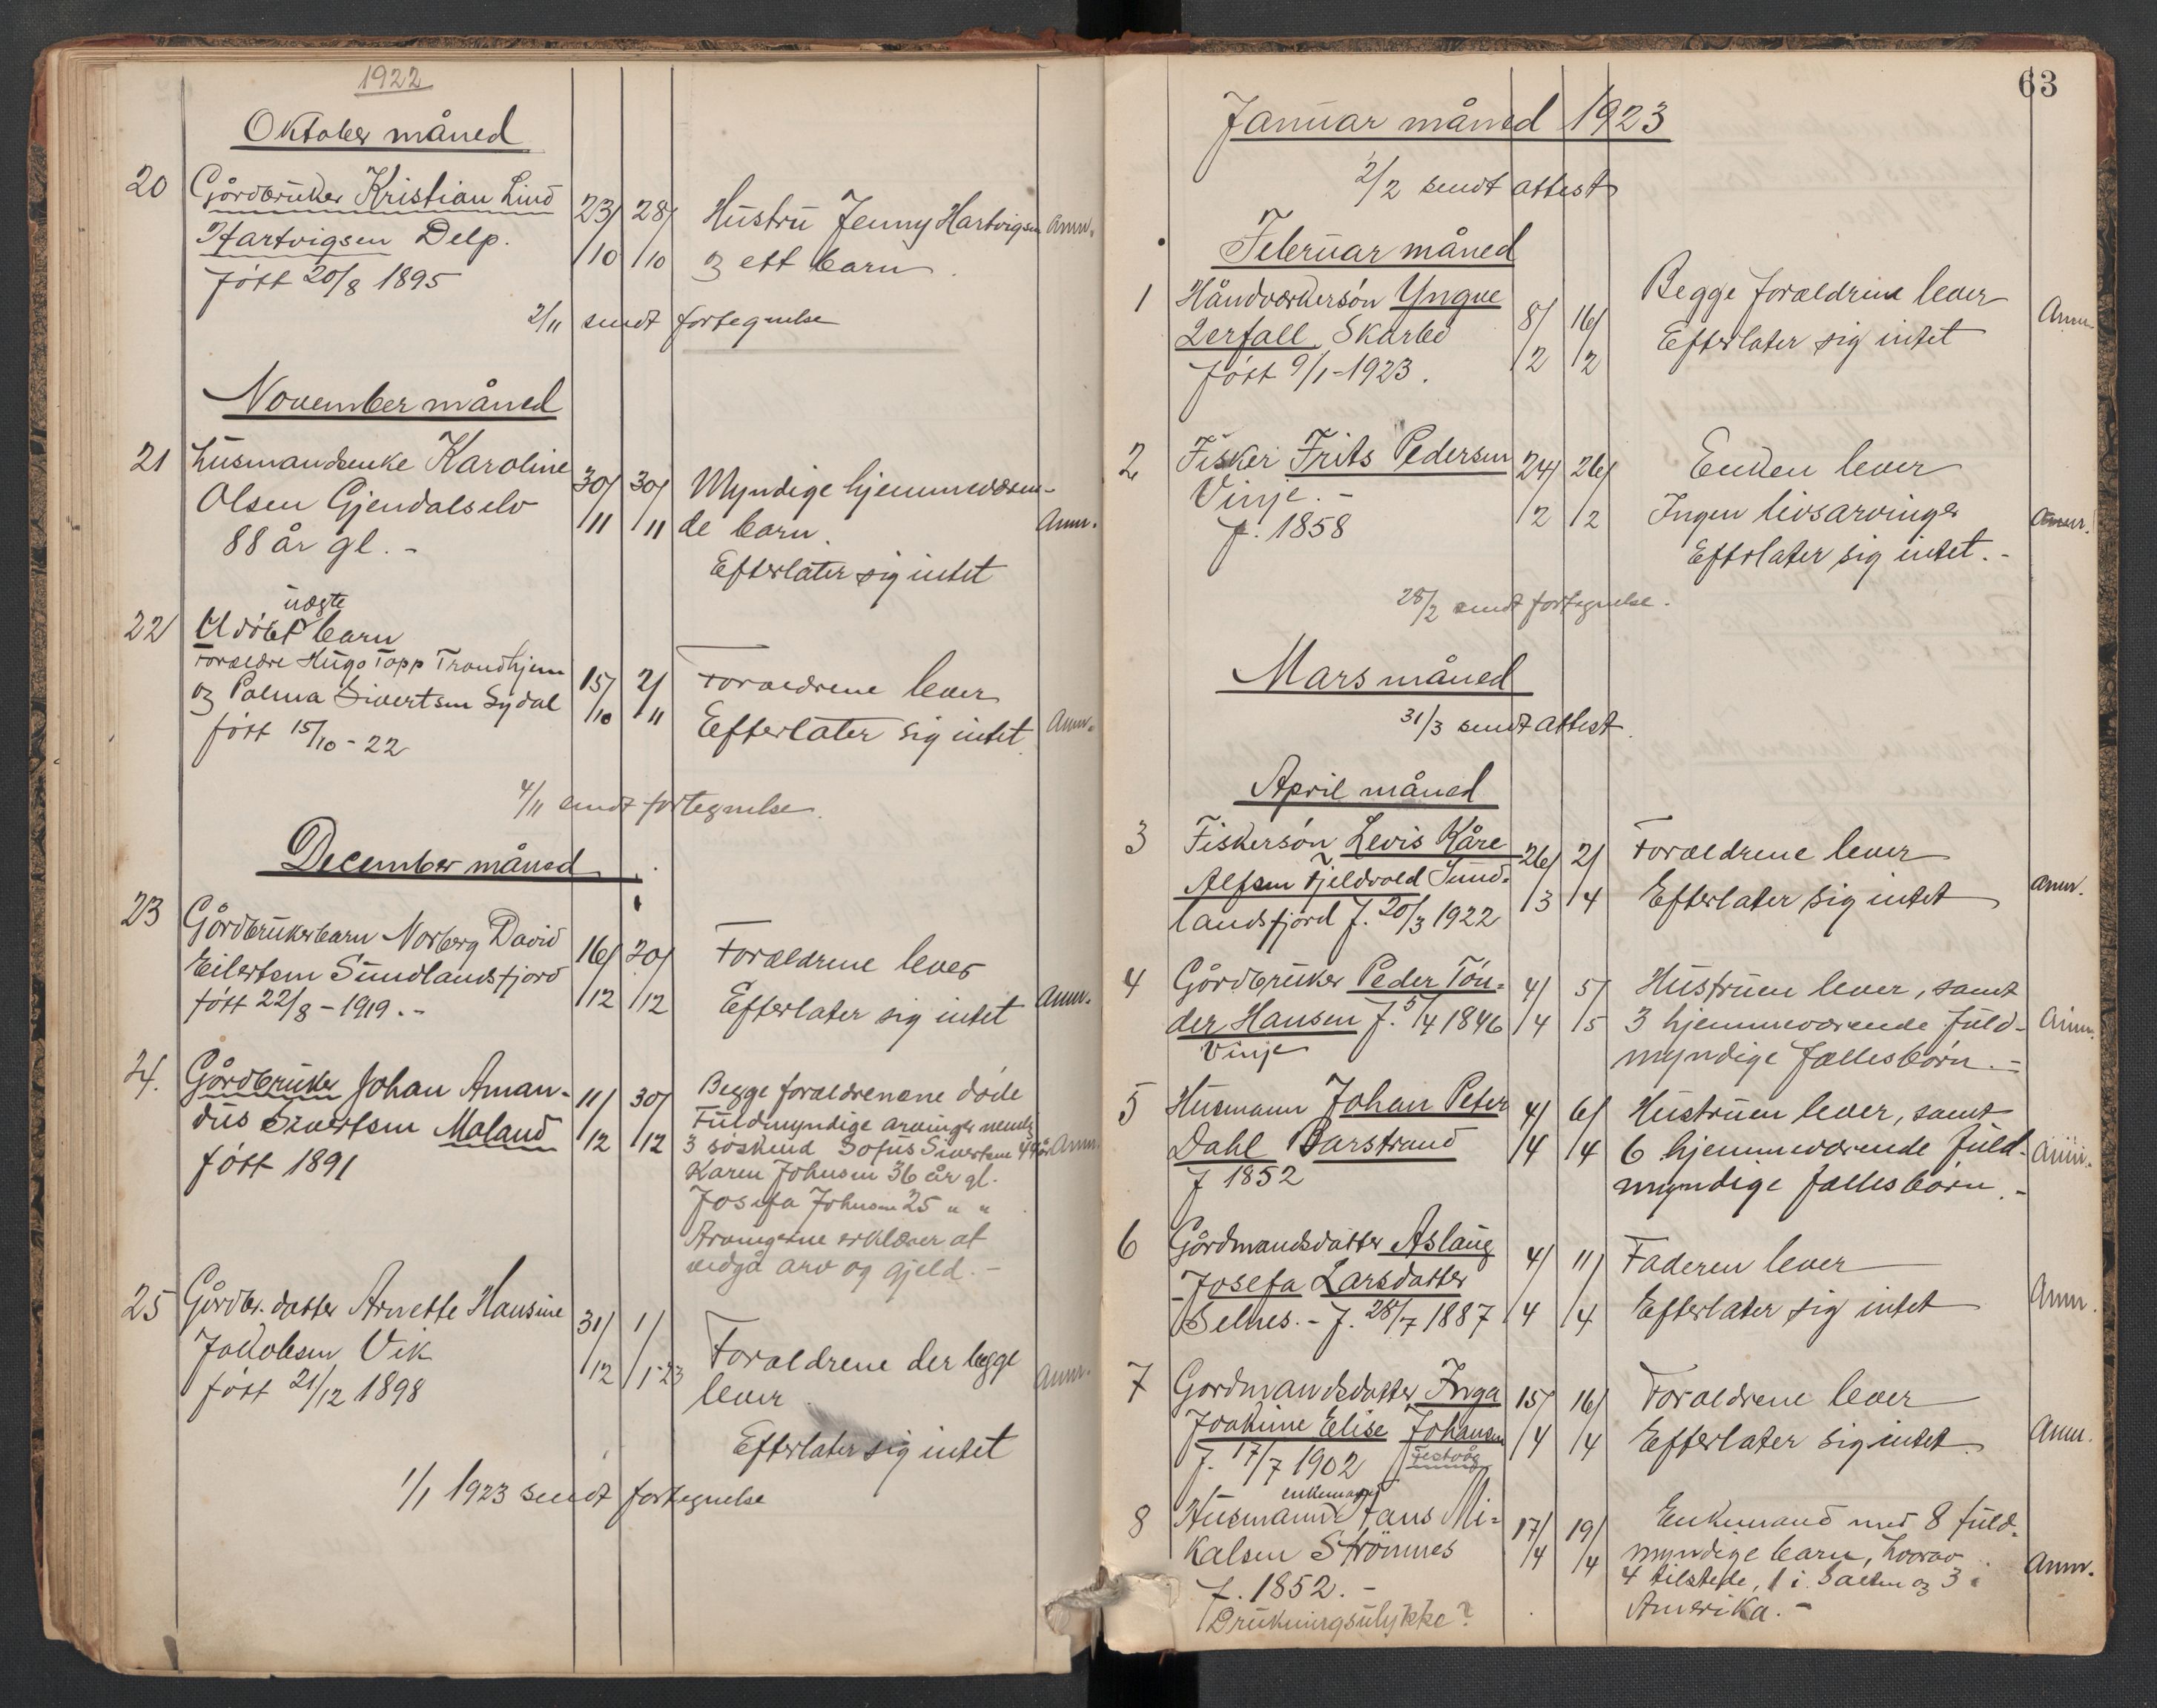 1922
Oktober måned
20 Gårdbruker Kristian Lind 23/10 28/10 Hustru Jenny Hartvigsen Anm.
Hartvigsen Delp. og ett barn.
født 20/8 1895
2/11 sendt fortegnelse
November måned
21 Husmandsenke Karoline 30/11 30/11 Myndige hjemmeværen-
Olsen Gjendalselv de barn. Anm.
88 år gl. -
Efterlater sig intet
uægte
22 Udöbt barn
Forældre Hugo Topp Trondhjem 15/10 2/11 Forældrene lever
og Palma Sivertsen Sydal Efterlater sig intet. Anm.
født 15/10 - 22
4/11 sendt fortegnelse.
December måned
23 Gårdbrukerbarn Norberg David 16/12 20/12 Forældrene lever
Eilertsen Sundlandsfjord Efterlater sig intet Anm.
født 22/8 - 1919. -
24. Gårdbruker Johan Aman- 11/12 30/12 Begge forældrenene døde
dus Sivertsen Moland Fuldmyndige arvinger nemlig
født 1891 3 søskend Sofus Sivertsen 49 år Anm.
Karen Johnsen 36 år gl.
Josefa Johnsen 25 " "
Arvingerne erklærer at
vedgå arv og gjeld. -
25 Gårdbr. datter Arnette Hansine 31/12 1/1-23 Forældrene der begge Anm.
Jakobsen Vik lever.
født 21/12 1898
Efterlater sig intet
1/1 1923 sendt fortegnelse
63
Januar måned 1923
2/2 sendt attest
Februar måned
1 Håndværkersøn Yngve 8/2 16/2 Begge forældrene lever Anm.
Lerfall, Skarbo Efterlater sig intet
født 9/1-1923.
2 Fisker Frits Pedersen 24/2 26/2 Enken lever
Vinje. - Ingen livsarvinger Anm.
f. 1858 Efterlater sig intet. -
28/2 sendt fortegnelse.
Mars måned
31/3 sendt attest.
April måned
3 Fiskersøn Levis Kåre 26/3 2/4 Forældrene lever
Alfsen Fjeldvold Sund- Efterlater sig intet Anm.
landsfjord f. 20/3 1922
4 Gårdbruker Peder Tön- 4/4 5/5 Hustruen lever, samt
der Hansen f. 5/4 1846 3 hjemmeværende fuld- Anm.
Vinje myndige fællesbörn. -
5 Husmann Johan Peter 4/4 6/4 Hustruen lever, samt
Dahl Barstrand 6 hjemmeværende fuld- Anm.
f 1852 myndige fællesbörn. -
6 Gårdmandsdatter Aslaug 4/4 11/4 Faderen lever
Josefa Larsdatter Efterlater sig intet Anm.
Selnes. - f. 28/7 1887
7 Gårdmandsdatter Inga 15/4 16/4 Forældrene lever
Joakime Elise Johansen Efterlater sig intet. Anm.
f. 17/7 1902 Festvåg
enkemann
8 Husmann Hans Mi- 17/4 19/4 Enkemand med 8 fuld-
kalsen Strömnes myndige barn, hvorav Anm.
f. 1852. - 4 tilstede, 1 i Salten og 3 i
Drukningsulykke? Amerika. -